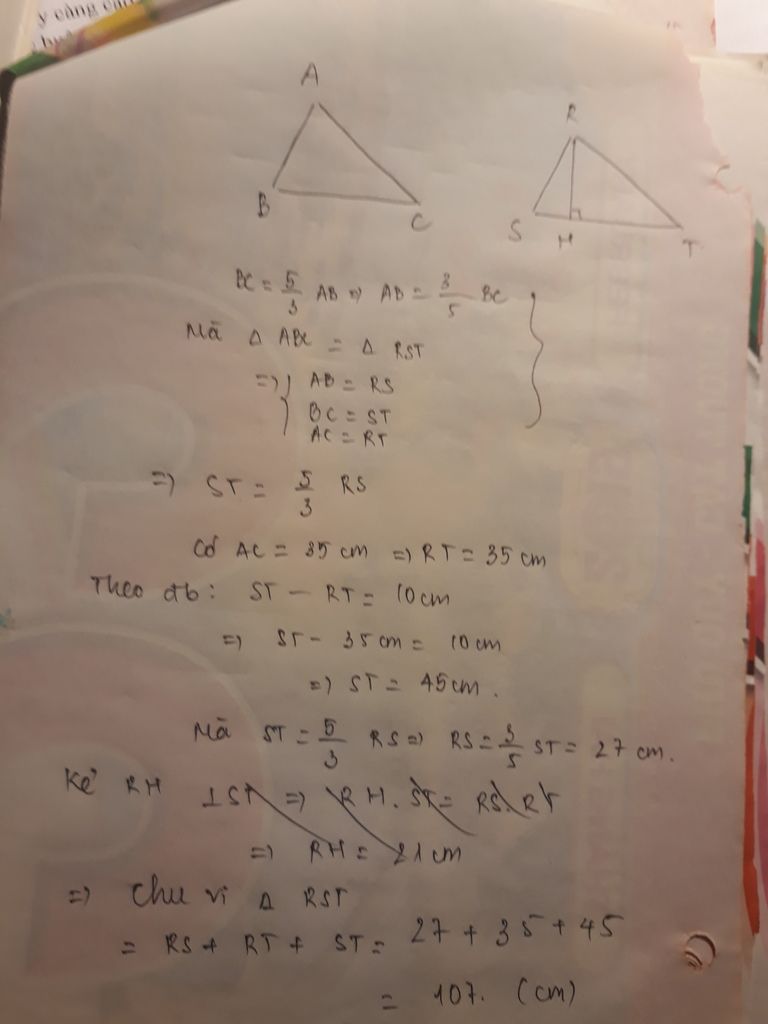 y càng
A
R
B
C
S
H
T
BC = 5/3 AB => AB = 3/5 BC
Mà Δ ABC = Δ RST
=> { AB = RS
BC = ST
AC = RT
=> ST = 5/3 RS
Có AC = 35 cm => RT = 35 cm
Theo đb: ST - RT = 10 cm
=> ST - 35 cm = 10 cm
=> ST = 45 cm.
Mà ST = 5/3 RS => RS = 3/5 ST = 27 cm.
Kẻ RH ⊥ ST => RH. ST = RS. RT
=> RH = 21 cm
=> Chu vi Δ RST
= RS + RT + ST = 27 + 35 + 45
= 107. (cm)